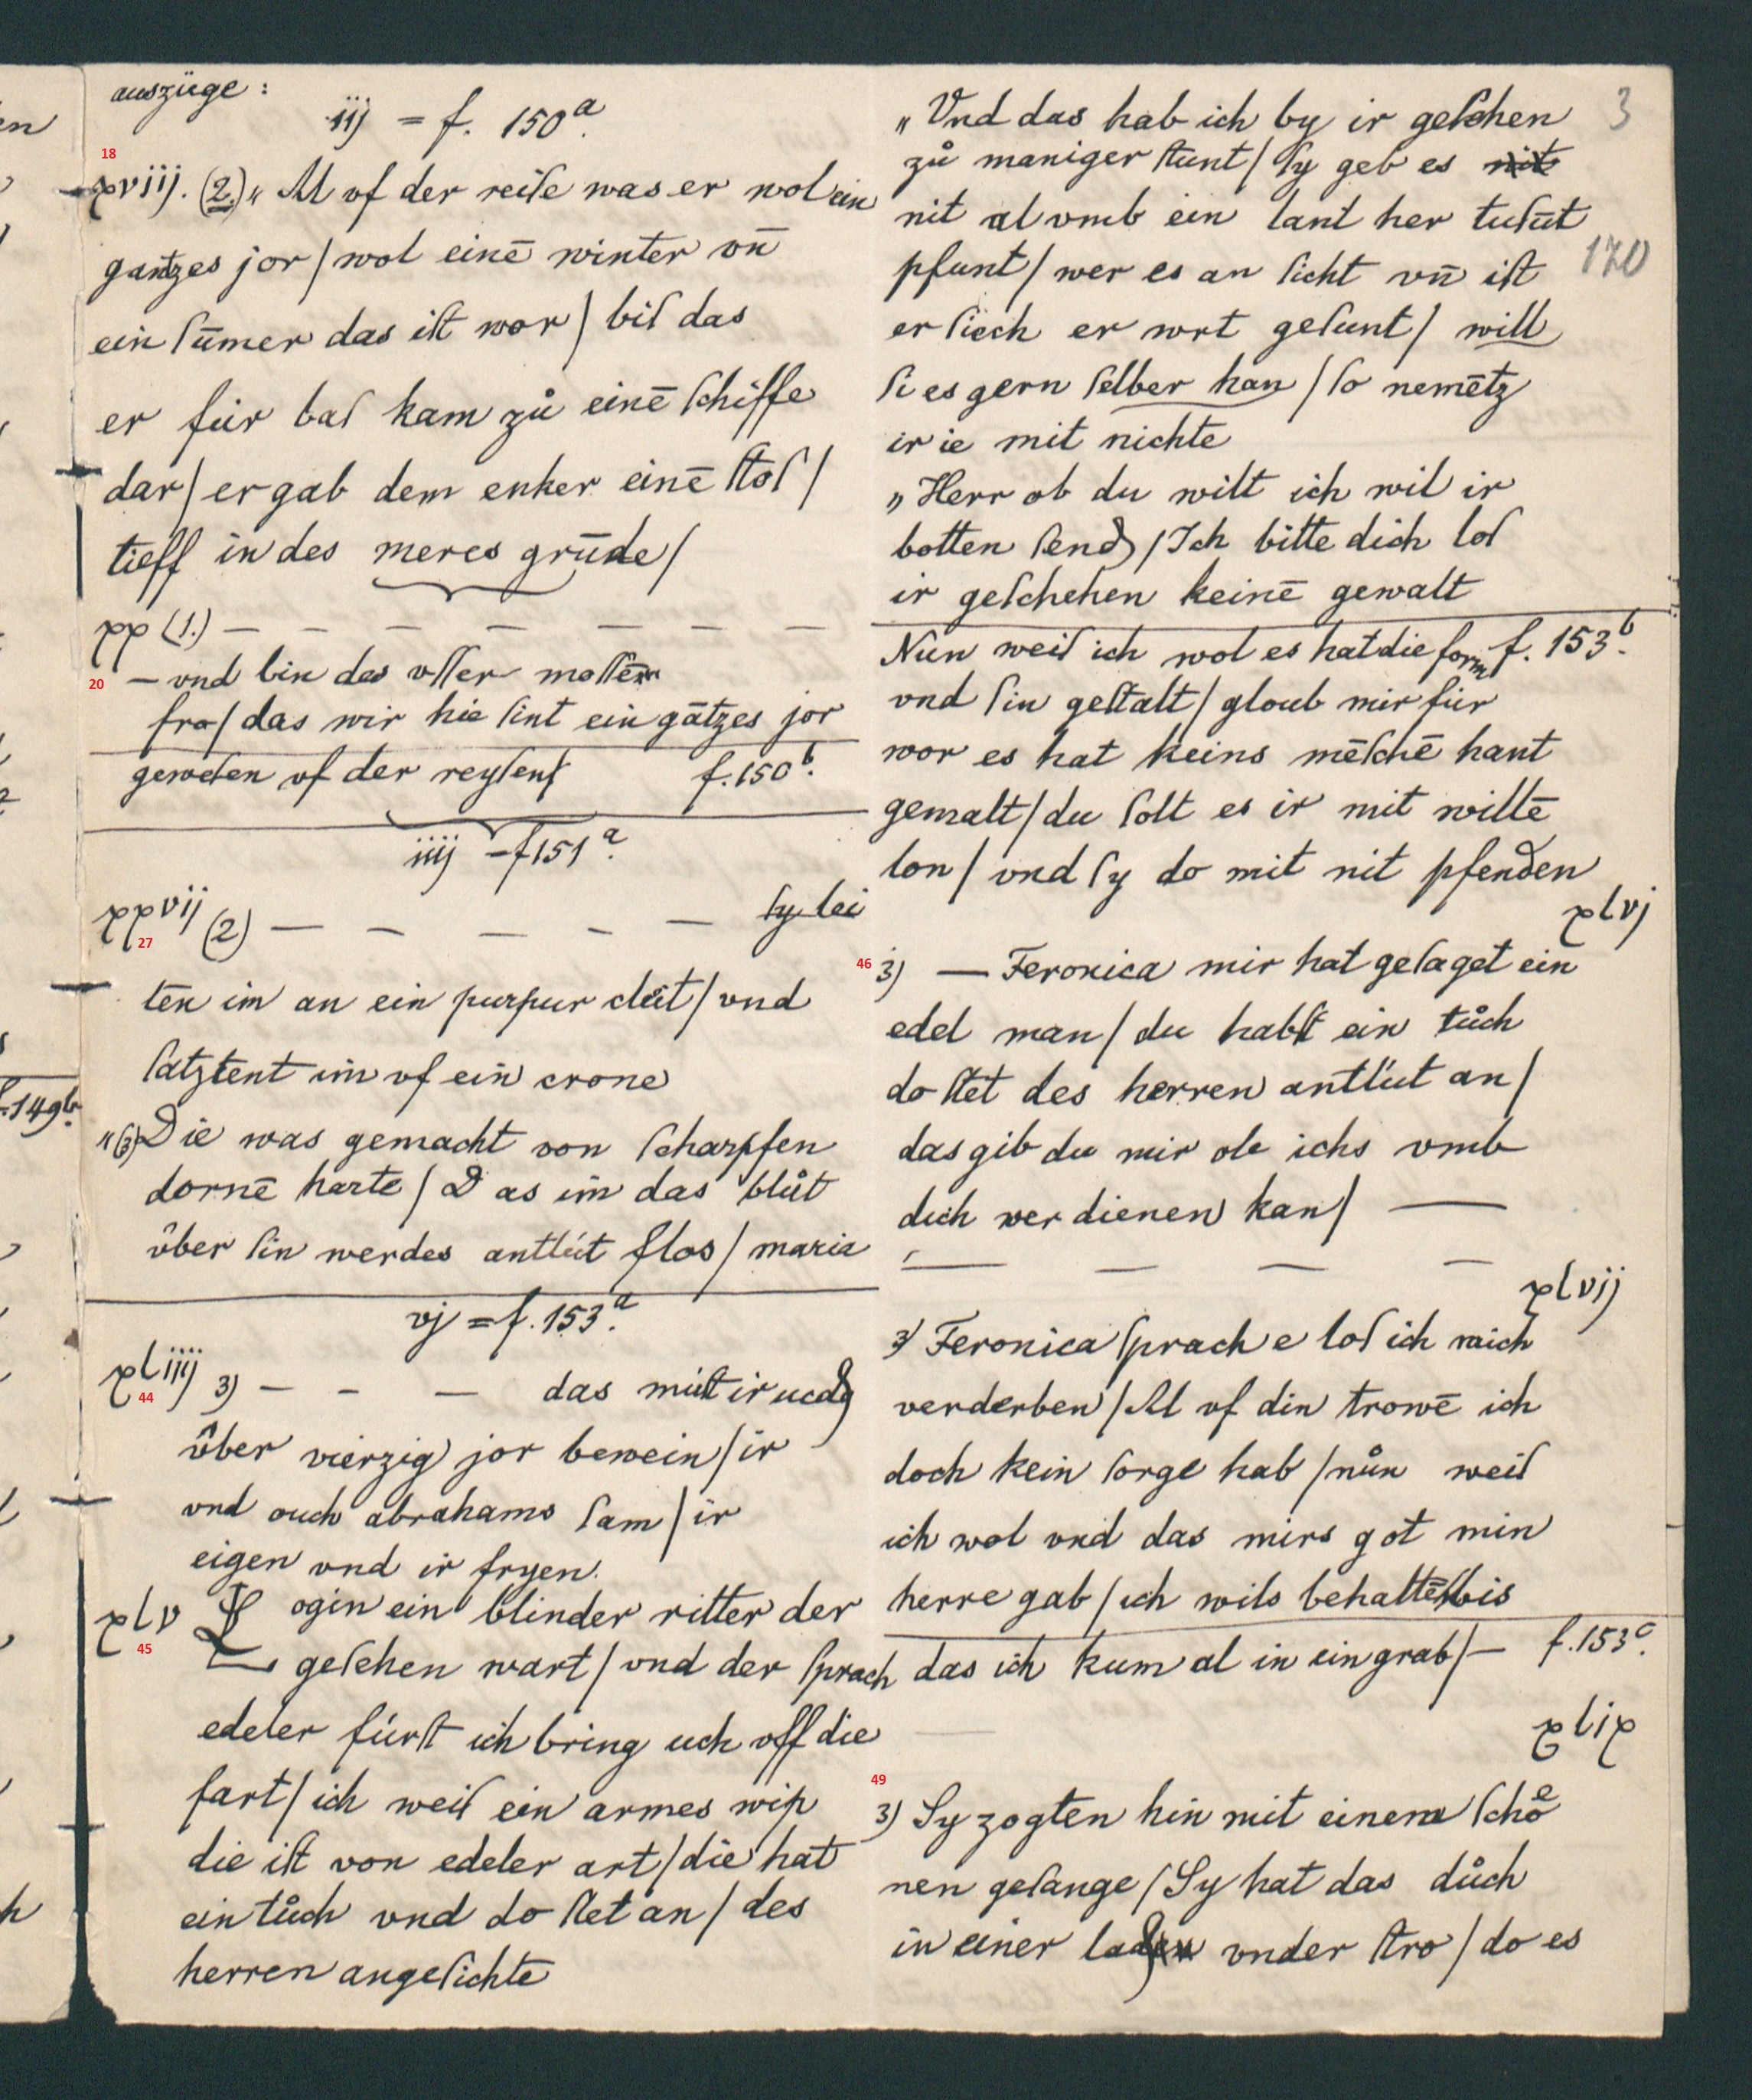 auszüge:
iij = f. 150a.
18
xviij. (2.) „ Al vf der reiſe was er wol ein
gantzes jor / wol einē winter vn̄
ein ſūmer das iſt wor / biſ das
er für baſ kam zů einē ſchiffe
dar / er gab dem enker einē ſtoſ /
tieff in des meres grūde /
xx (1.) — — — — — — —
20
— vnd bin das vſſer moſſen
fro / das wir hie ſint ein gātzes jor
geweſen vf der reyſent f. 150b.
iiij = f 151a.
xxvij (2) — — — — — ſy lei
27
ten im an ein purpur cleit / vnd
ſatztent im vf ein crone
„ (3) Die was gemacht von ſcharpfen
dornē harte / Das im das blůt
über ſin werdes antlüt flos / maria
vj = f. 153a.
xliiij 3) — — — das müſt ir
44
über vierzig jor bewein / ir
vnd ouch abrahams ſam / ir
eigen vnd ir fryen.
xlv Login ein blinder ritter der
45
geſehen wart / vnd der ſprach
edeler fürſt ich bring uch vff die
fart / ich weiſ ein armes wip
die iſt von edeler art / die hat
ein tůch vnd do ſtet an / des
herren angeſichte
„ Vnd das hab ich by ir geſehen 3
zů maniger ſtunt / ſy geb es nit
nit al vmb ein lant her tuſūt
pfunt / wer es an ſicht vn̄ iſt 170
er ſiech er wrt geſunt / will
ſi es gern ſelber han / ſo nemētz
ir ie mit nichte
„ Herr ob du wilt ich wil ir
botten ſend / Ich bitte dich loſ
ir geſchehen keinē gewalt
Nun weiſ ich wol es hat die form f. 153b.
vnd ſin geſtalt / gloub mir für
wor es hat keins mēſchē hant
gemalt / du ſolt es ir mit willē
lon / vnd ſy do mit nit pfenden
xlvj
46
3) — Feronica mir hat geſaget ein
edel man / du habſt ein tůch
do ſtet des herren antlüt an /
das gib du mir ob ichs vmb
dich verdienen kan / —
— — — —
xlvij
3) Feronica ſprach e loſ ich mich
verderben / Al vf din trowē ich
doch kein ſorge hab / nůn weiſ
ich wol vnd das mirs got min
herre gab / ich wils behaltē bis
das ich kum al in ein grab / — f. 153c.
xlix
49
3) Sy zogten hin mit einem ſchoͤ
nen geſange / Sy hat das důch
in einer laden vnder ſtro / do es
f. 149b.